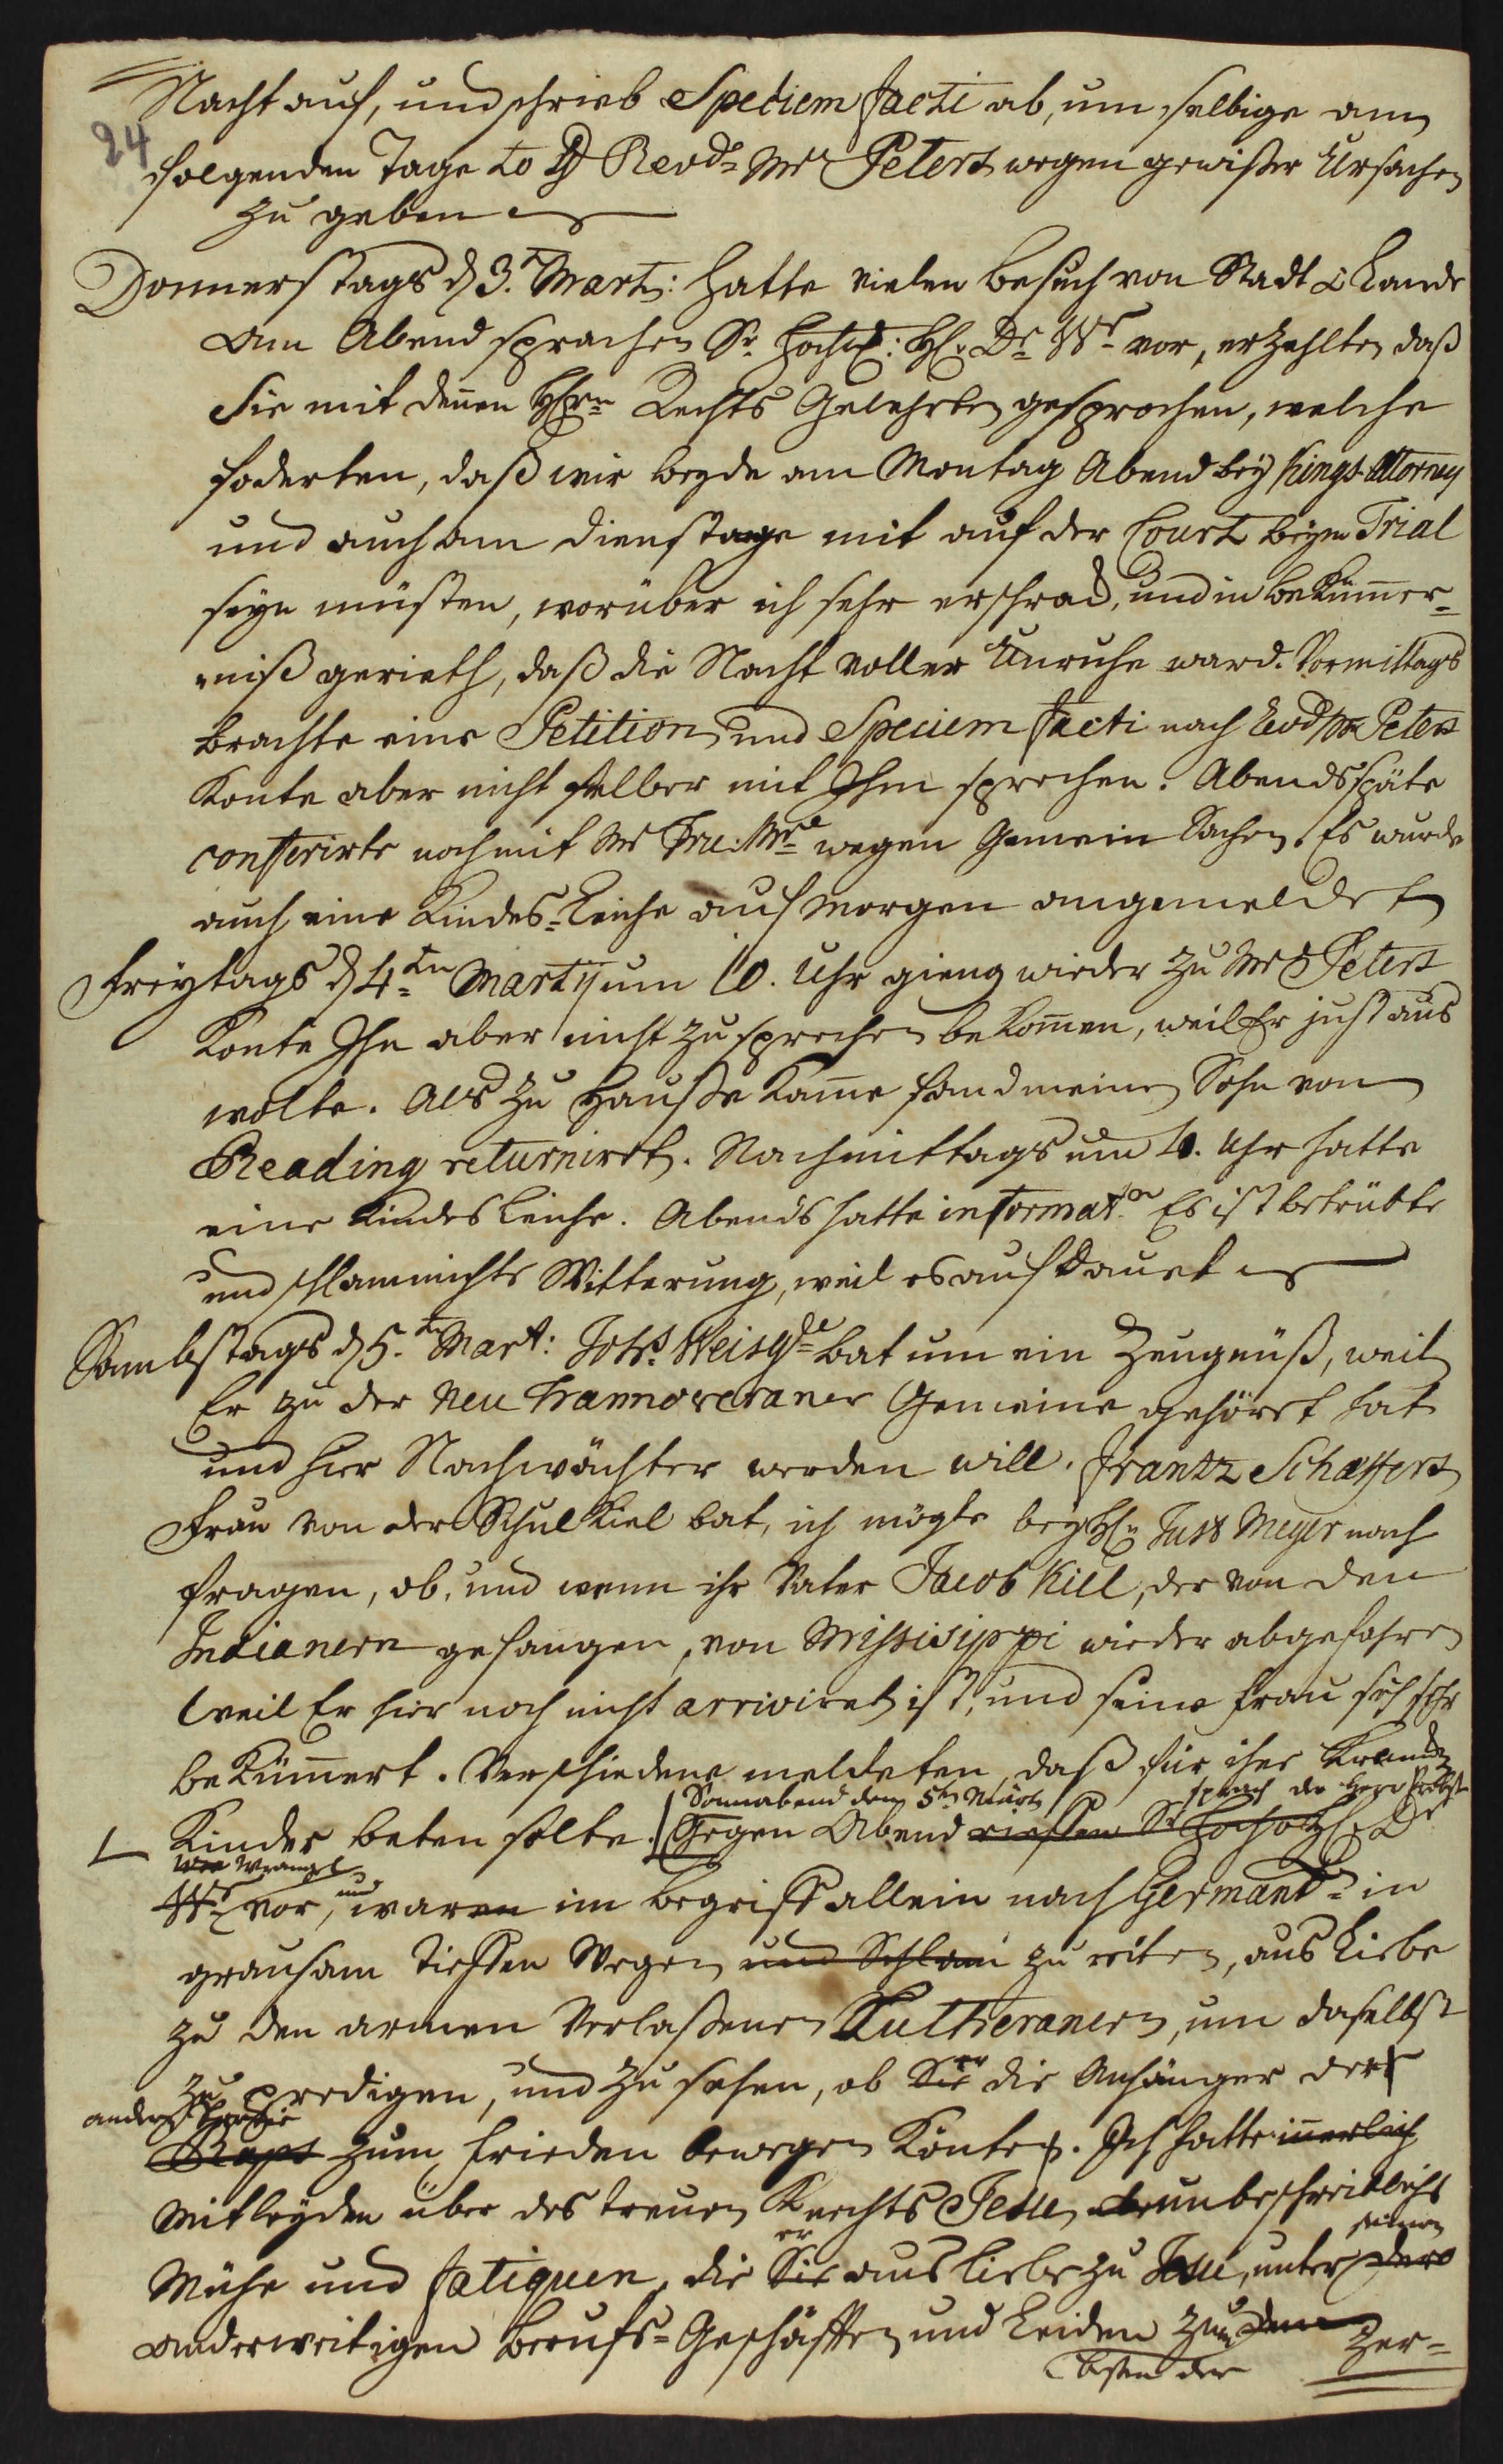 24
Nacht auf, und schrieb Speciem facti ab, um selbige am
folgenden Tage to D Revd. Mr Peters wegen gewißer Ursachen
zu geben
Donnerstags d 3. Mart: hatte vielen besuch von Stadt & Lande
Am Abend sprachen Sr. Hochw: H. Dr. Wr. vor, erzehlten daß
Sie mit denen Hhrn Rechts Gelehrten gesprochen, welche
foderten, daß wir beyde am Montag Abend bey Kings-Attorney
und auch am dienstage mit auf der Court beym Trial
seyn müsten, worüber ich sehr erschrack, und in bekümmer=
niß gerieth, daß die Nacht voller Unruhe ward. Vormittags
brachte eine Petition und Speciem facti nach Revd Mr Peters
Konte aber nicht selber mit Ihm sprechen. Abends späte
conferirte noch mit Mr wegen Gemein Sachen. Es wurde
auch eine Kindes=Leiche auf Morgen angemeldet
Freytags d 4ten Martij um 10. Uhr gieng wieder zu Mr Peters
Konte Ihn aber nicht zu sprechen bekommen, weil Er just aus
wolte. Als zu Hauße kame fand meinen Sohn von
Reading returnirt. Nachmittags um 4. Uhr hatte
eine Kindes Leiche. Abends hatte informat: Es ist betrübte
und schlammichte Witterung, weil es aufdauet
Sambstags d 5. Mart: Joh. Weisg bat um ein Zeugnüß, weil
Er zu der Neu Hannoveraner Gemeine gehöret hat
und hier Nachwächter werden will. Frantz Schaffers
Frau von der Schulkiel bat, ich mögte bey H. Just Meyer nach
fragen, ob, und wenn ihr Vater Jacob Kill, der von den
Indianern gefangen, von Missisippi wieder abgefahren
weil Er hier noch nicht arriviret ist, und seine Frau sich sehr
bekümmert. Verschiedene meldeten, daß für ihre Krancke
Sonnabend den 5ten Märtz sprach der Herr Probst
Kinder beten solte. Gegen Abend rieffen Sr. Hochw H. Dr
Wrangel
Wr. vor, und waren im begriff allein nach Germant. in
grausam tieffen Wegen und Schlam zu reiten, aus Liebe
zu den armen Verlaßenen Lutheranern, um daselbst
zu predigen, und zu sehen, ob Sie er die Anhänger der
andern Parthie
Raps zum frieden bewegen Könte. Ich hatte innerlich
Mitleyden über des treuen Knechts Jesu unbeschreibliche
er seinen
Mühe und fatiquen, die Sie aus Liebe zu Jesu, unter dero
anderweitigen Berufs=Geschäfften und Leiden zum
besten der Zer=